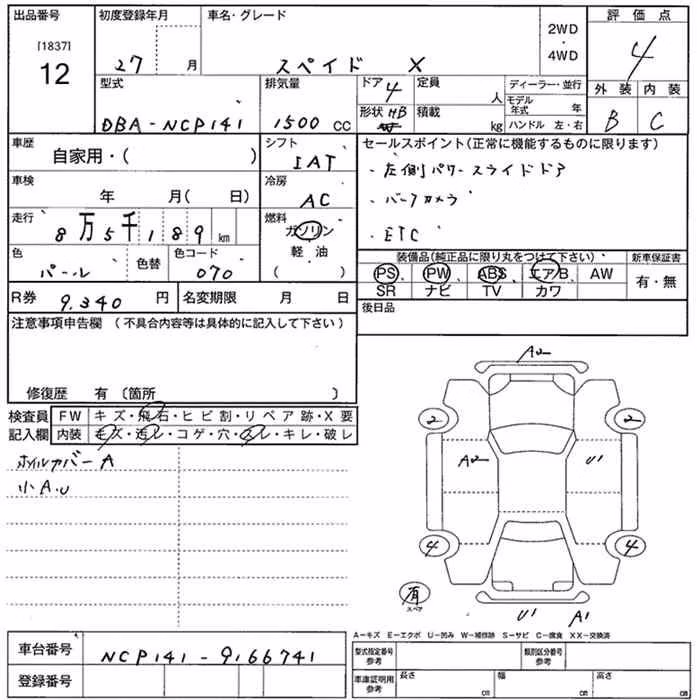 出品番号 初度登録年月 車名・グレード 評価点
[1837]
12
27 月 スペイド X
2WD
・
4WD
4
型式 排気量 ドア 4 定員 人 ディーラー・並行 外装 内装
DBA-NCP141 1500 CC 形状 HB 積載 kg モデル年式 年
ハンドル 左・右 B C
車歴 自家用・( ) シフト IAT セールスポイント(正常に機能するものに限ります)
・左側パワースライドドア
車検 年 月( 日) 冷房 AC
・バックカメラ
走行 8万5千189 km 燃料 ガソリン
軽・油
( )
・ETC
色 パール 色替 色コード 070
装備品(純正品に限り丸をつけて下さい) 新車保証書
PS PW ABS エアB AW 有・無
SR ナビ TV カワ
R券 9,340 円 名変期限 月 日 後日品
注意事項申告欄 (不具合内容等は具体的に記入して下さい)
修復歴 有 〔箇所 〕
検査員 FW キズ・飛石・ヒビ割・リペア跡・X要
記入欄 内装 キズ・汚レ・コゲ・穴・スレ・キレ・破レ
ホイルカバーA
小A.U
A2
2 2
A2 U1
4 4
有
スペア
U1 A1
A−キズ E−エクボ U−凹み W−補修跡 S−サビ C−腐食 XX−交換済
車台番号 NCP141-9166741
型式指定番号 参考 類別区分番号 参考
登録番号
車庫証明用 参考 長さ cm 幅 cm 高さ cm